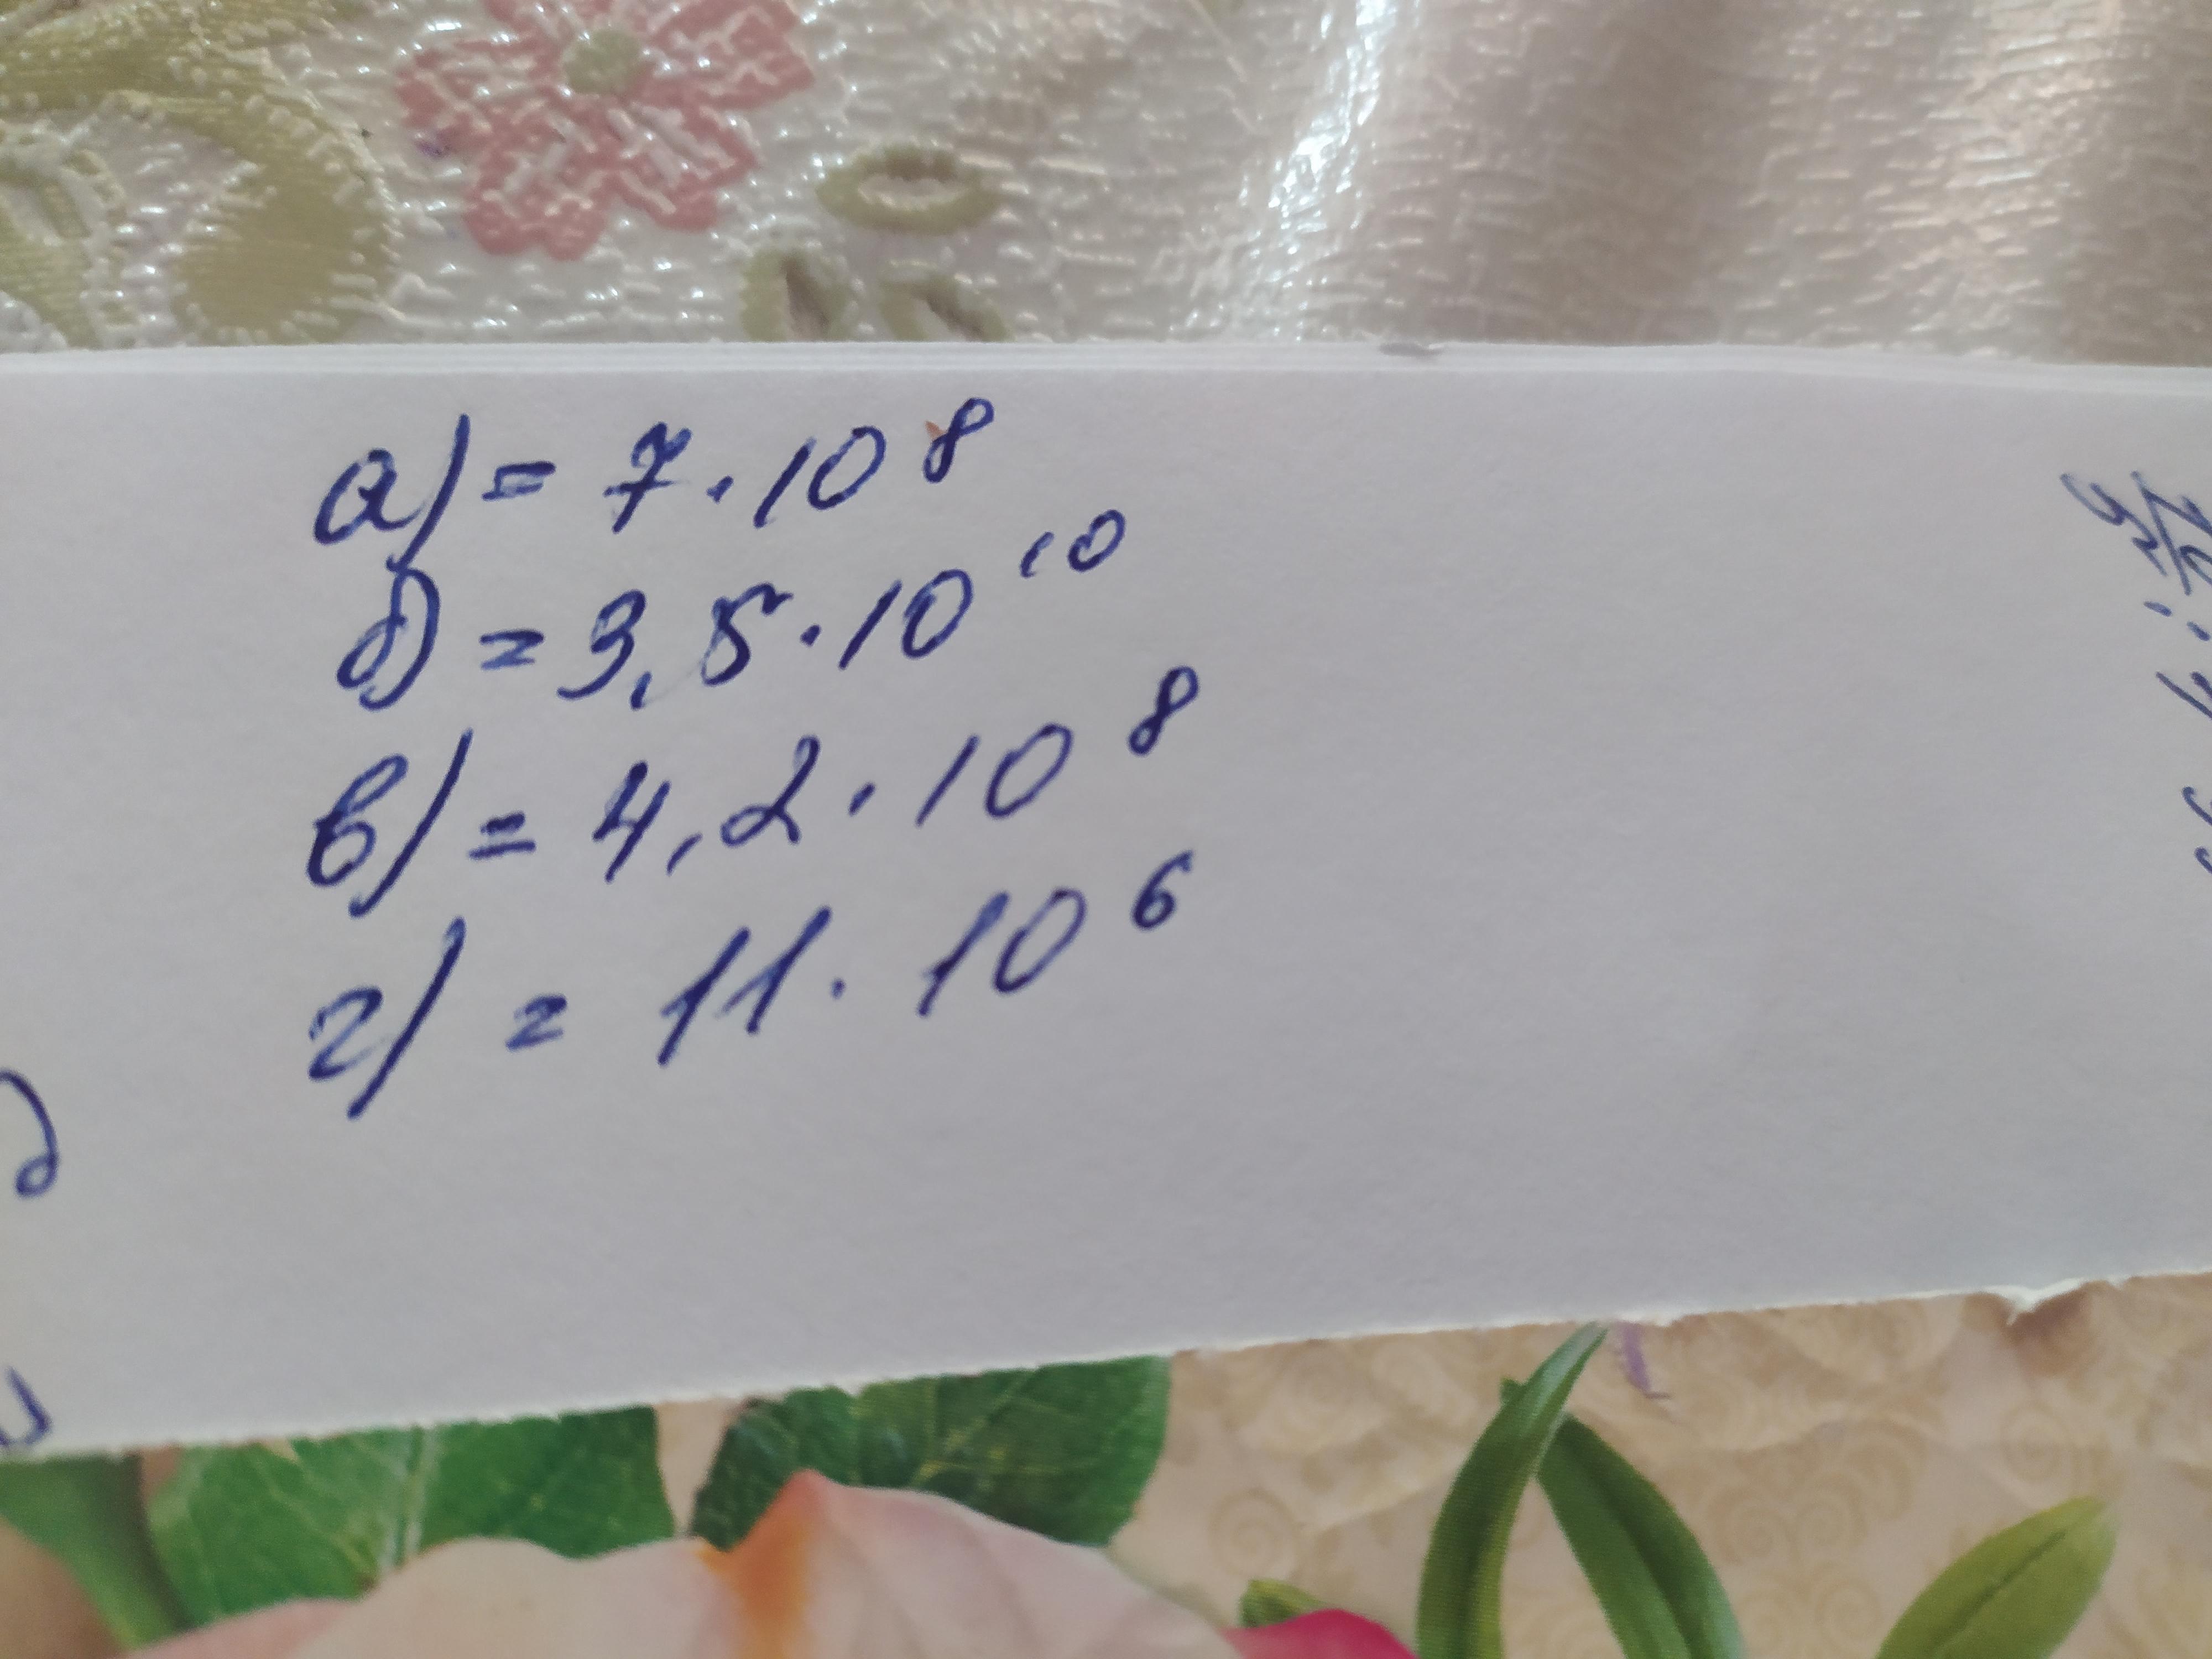 а) = 7 · 10⁸
б) = 3,5 · 10¹⁰
в) = 4,2 · 10⁸
г) = 11 · 10⁶